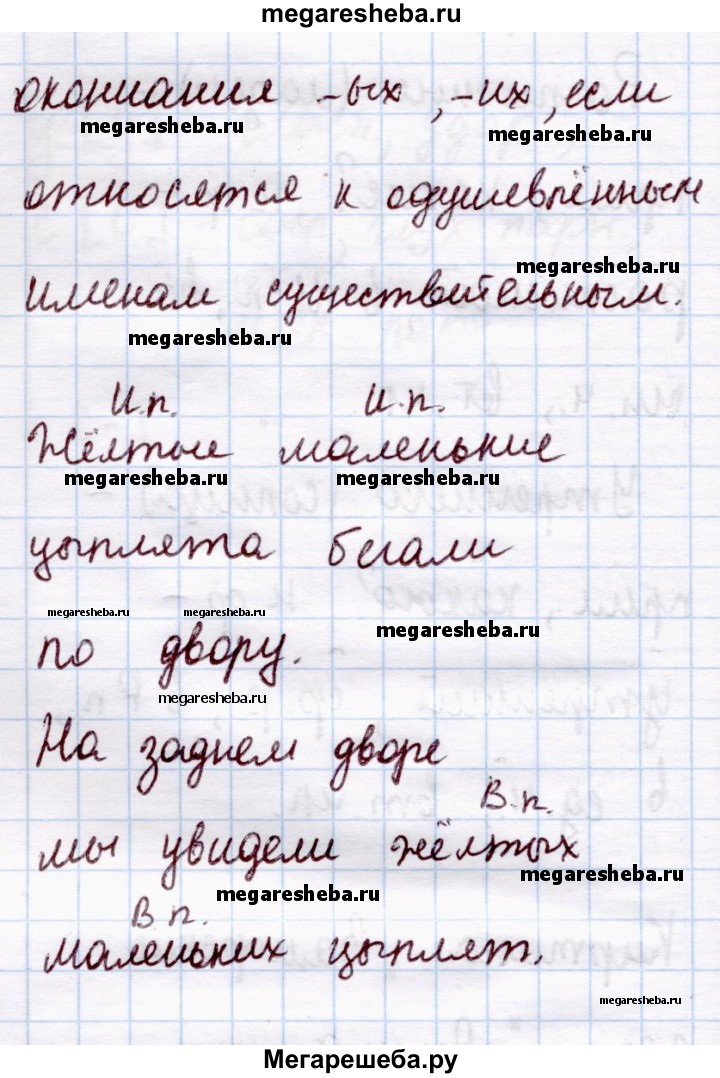 megaresheba.ru
окончания -ых, -их, если
megaresheba.ru megaresheba.ru
относятся к одушевлённым
megaresheba.ru
именам существительным.
megaresheba.ru
И.п. И.п.
Жёлтые маленькие
megaresheba.ru megaresheba.ru
цыплята бегали
megaresheba.ru megaresheba.ru megaresheba.ru
по двору.
megaresheba.ru
На заднем дворе
В.п.
мы увидели жёлтых
megaresheba.ru megaresheba.ru
В.п.
маленьких цыплят.
megaresheba.ru
Мегарешеба.ру